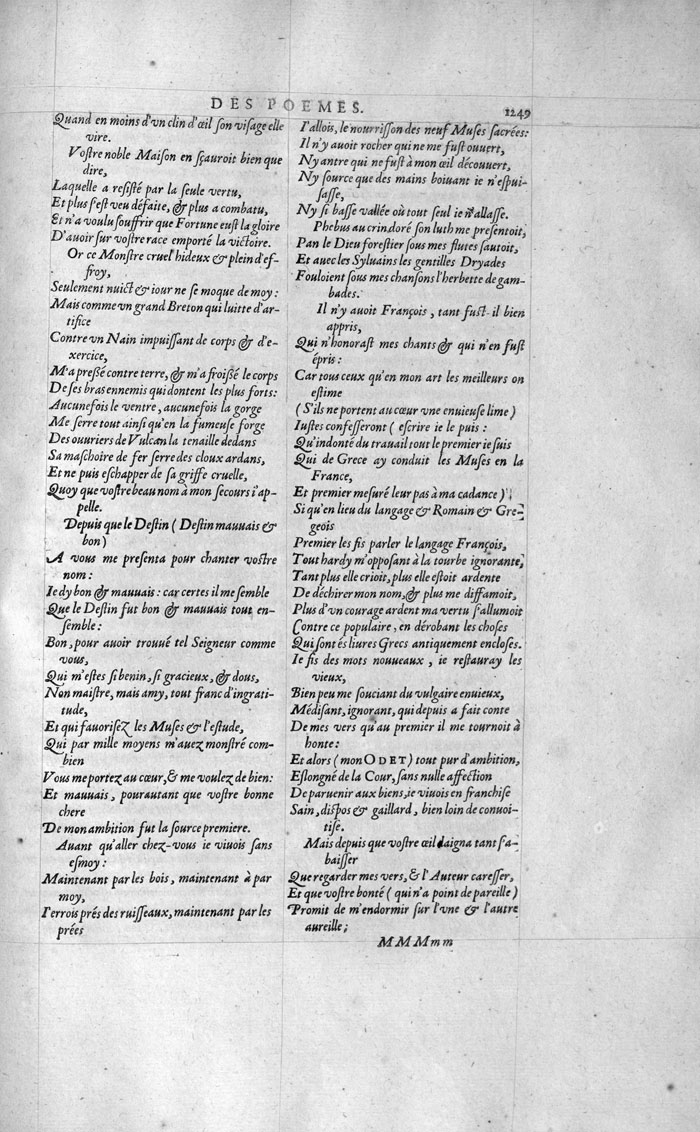 DES POEMES.
1249
Quand en moins d'vn clin d'œil son visage elle
vire.
Vostre noble Maison en sçauroit bien que
dire,
Laquelle a resisté par la seule vertu,
Et plus s'est veu défaite, & plus a combatu,
Et n'a voulu souffrir que Fortune eust la gloire
D'auoir sur vostre race emporté la victoire.
Or ce Monstre cruel hideux & plein d'ef-
froy,
Seulement nuict & iour ne se moque de moy:
Mais comme vn grand Breton qui luitte d'ar-
tifice
Contre vn Nain impuissant de corps & d'e-
xercice,
M'a pressé contre terre, & m'a froissé le corps
De ses bras ennemis qui dontent les plus forts:
Aucunefois le ventre, aucunefois la gorge
Me serre tout ainsi qu'en la fumeuse forge
Des ouuriers de Vulcan la tenaille dedans
Sa maschoire de fer serre des cloux ardans,
Et ne puis eschapper de sa griffe cruelle,
Quoy que vostre beau nom à mon secours i'ap-
pelle.
Depuis que le Destin (Destin mauuais &
bon)
A vous me presenta pour chanter vostre
nom:
Ie dy bon & mauuais: car certes il me semble
Que le Destin fut bon & mauuais tout en-
semble:
Bon, pour auoir trouué tel Seigneur comme
vous,
Qui m'estes si benin, si gracieux, & dous,
Non maistre, mais amy, tout franc d'ingrati-
tude,
Et qui fauorisez les Muses & l'estude,
Qui par mille moyens m'auez monstré com-
bien
Vous me portez au cœur, & me voulez de bien:
Et mauuais, pourautant que vostre bonne
chere
De mon ambition fut la source premiere.
Auant qu'aller chez-vous ie viuois sans
esmoy:
Maintenant par les bois, maintenant à par
moy,
I'errois prés des ruisseaux, maintenant par les
prées
I'allois, le nourrisson des neuf Muses sacrées:
Il n'y auoit rocher qui ne me fust ouuert,
Ny antre qui ne fust à mon œil découuert,
Ny source que des mains boiuant ie n'espui-
sasse,
Ny si basse vallée où tout seul ie n'allasse.
Phebus au crin doré son luth me presentoit,
Pan le Dieu forestier sous mes flutes sautoit,
Et auec les Syluains les gentilles Dryades
Fouloient sous mes chansons l'herbette de gam-
bades.
Il n'y auoit François, tant fust-il bien
appris,
Qui n'honorast mes chants & qui n'en fust
épris:
Car tous ceux qu'en mon art les meilleurs on
estime
(S'ils ne portent au cœur vne enuieuse lime)
Iustes confesseront (escrire ie le puis:
Qu'indonté du trauail tout le premier ie suis
Qui de Grece ay conduit les Muses en la
France,
Et premier mesuré leur pas à ma cadance);
Si qu'en lieu du langage & Romain & Gre-
geois
Premier les fis parler le langage François,
Tout hardy m'opposant à la tourbe ignorante,
Tant plus elle crioit, plus elle estoit ardente
De déchirer mon nom, & plus me diffamoit,
Plus d'vn courage ardent ma vertu s'allumoit
Contre ce populaire, en dérobant les choses
Qui sont és liures Grecs antiquement encloses.
Ie fis des mots nouueaux, ie restauray les
vieux,
Bien peu me souciant du vulgaire enuieux,
Médisant, ignorant, qui depuis a fait conte
De mes vers qu'au premier il me tournoit à
honte:
Et alors (mon ODET) tout pur d'ambition,
Eslongné de la Cour, sans nulle affection
De paruenir aux biens, ie viuois en franchise
Sain, dispos & gaillard, bien loin de conuoi-
tise.
Mais depuis que vostre œil daigna tant s'a-
baisser
Que regarder mes vers, & l'Auteur caresser,
Et que vostre bonté (qui n'a point de pareille)
Promit de m'endormir sur l'vne & l'autre
aureille;
MMMmm